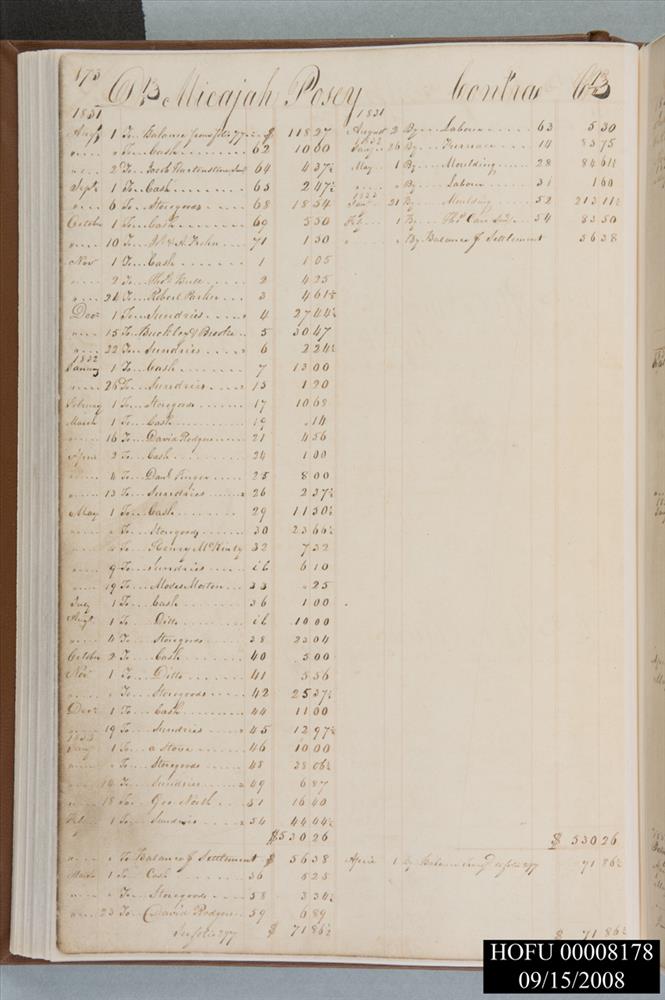 173
Dr Micajah Posey
1831
Augt 1 To Balance from folio 77 $ 118 27
" " To Cash 62 10 00
" 2 To Jacob 64 4 37½
Sept 1 To Cash 65 2 47½
" 6 To Storegoods 68 18 54
October 1 To Cash 69 5 50
" 10 To 71 1 50
Nov 1 To Cash 1 1 05
" 2 To Thos Bull 2 4 25
" 24 To Robert Parker 3 4 61½
Decr 1 To Sundries 4 27 44½
" 15 To Buckley & Brooke 5 30 47
" 22 To Sundries 6 2 24½
1832
January 1 To Cash 7 13 00
" 26 To Sundries 13 1 20
February 1 To Storegoods 17 10 68
March 1 To Cash 19 14
" 16 To David Rodgers 21 4 56
April 2 To Cash 24 1 00
" 4 To Danl Finger 25 8 00
" 13 To Sundries 26 2 37½
May 1 To Cash 29 11 30½
" " To Storegoods 30 23 66½
" " To Henry McKinty 32 7 32
" 9 To Sundries ib 6 10
" 19 To Moses Morton 33 25
July 1 To Cash 36 1 00
Augt 1 To Ditto ib 10 00
" 4 To Storegoods 38 23 04
October 2 To Cash 40 5 00
Nov 1 To Ditto 41 5 56
" " To Storegoods 42 25 37½
Decr 1 To Cash 44 11 00
" 19 To Sundries 45 12 97½
1833
Jany 1 To a Stove 46 10 00
" " To Storegoods 48 38 06½
" 14 To Sundries 49 6 87
" 18 To Geo North 51 16 40
Feby 1 To Sundries 54 44 44½
$530 26
" " To Balance of Settlement $ 56 38
March 1 To Cash 56 5 25
" " To Storegoods 58 3 34½
" 23 To David Rodgers 59 6 89
In folio 277 $ 71 86½
Contra Cr
1831
August 2 By Labour 63 5 30
1832
Jany 26 By Furnace 14 83 75
May 1 By Moulding 28 84 61½
" " By Labour 31 1 60
1833
Jany 21 By Moulding 52 213 11½
Feby 1 By Thos Care 54 83 50
" " By Balance of Settlement 56 38
$ 530 26
April 1 By Balance folio 277 71 86½
$ 71 86½
HOFU 00008178
09/15/2008